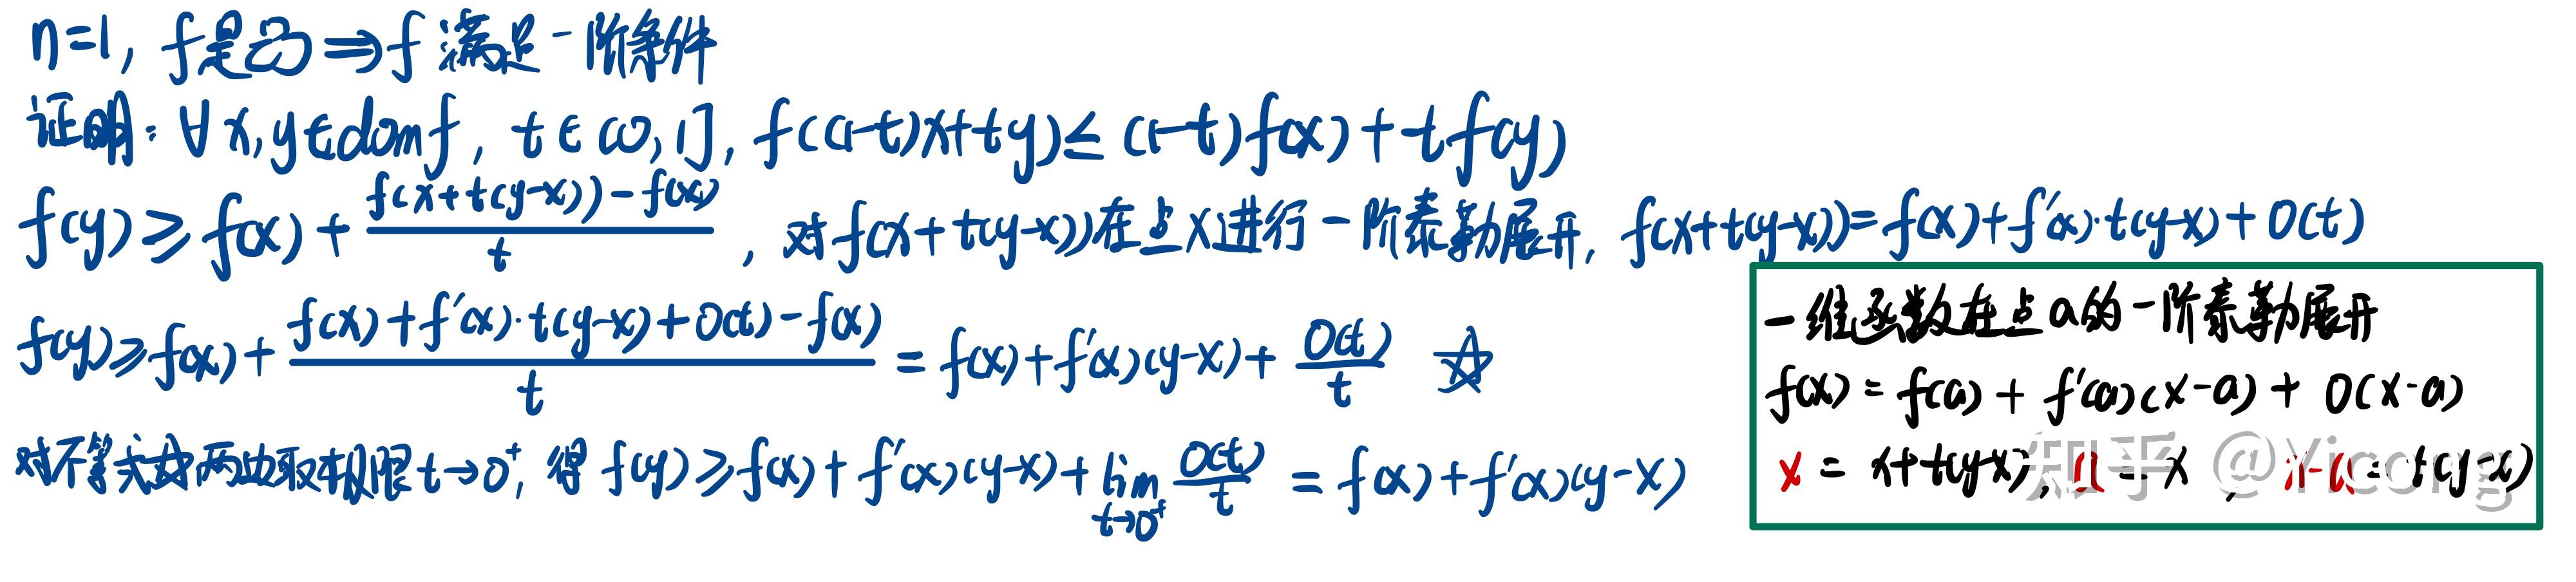 n=1, f是凸⇒f满足一阶条件
证明: ∀x,y∈domf, t∈(0,1], f((1-t)x+ty)≤(1-t)f(x)+tf(y)
f(y)≥f(x)+\frac{f(x+t(y-x))-f(x)}{t}, 对f(x+t(y-x))在点x进行一阶泰勒展开, f(x+t(y-x))=f(x)+f'(x)·t(y-x)+o(t)
f(y)≥f(x)+\frac{f(x)+f'(x)·t(y-x)+o(t)-f(x)}{t}=f(x)+f'(x)(y-x)+\frac{o(t)}{t} ☆
对不等式☆两边取极限t→0⁺, 得 f(y)≥f(x)+f'(x)(y-x)+\lim_{t→0⁺}\frac{o(t)}{t}=f(x)+f'(x)(y-x)
一维函数在点a的一阶泰勒展开
f(x)=f(a)+f'(a)(x-a)+o(x-a)
x=x+t(y-x), a=x, x-a=t(y-x)
知乎 @Yicong